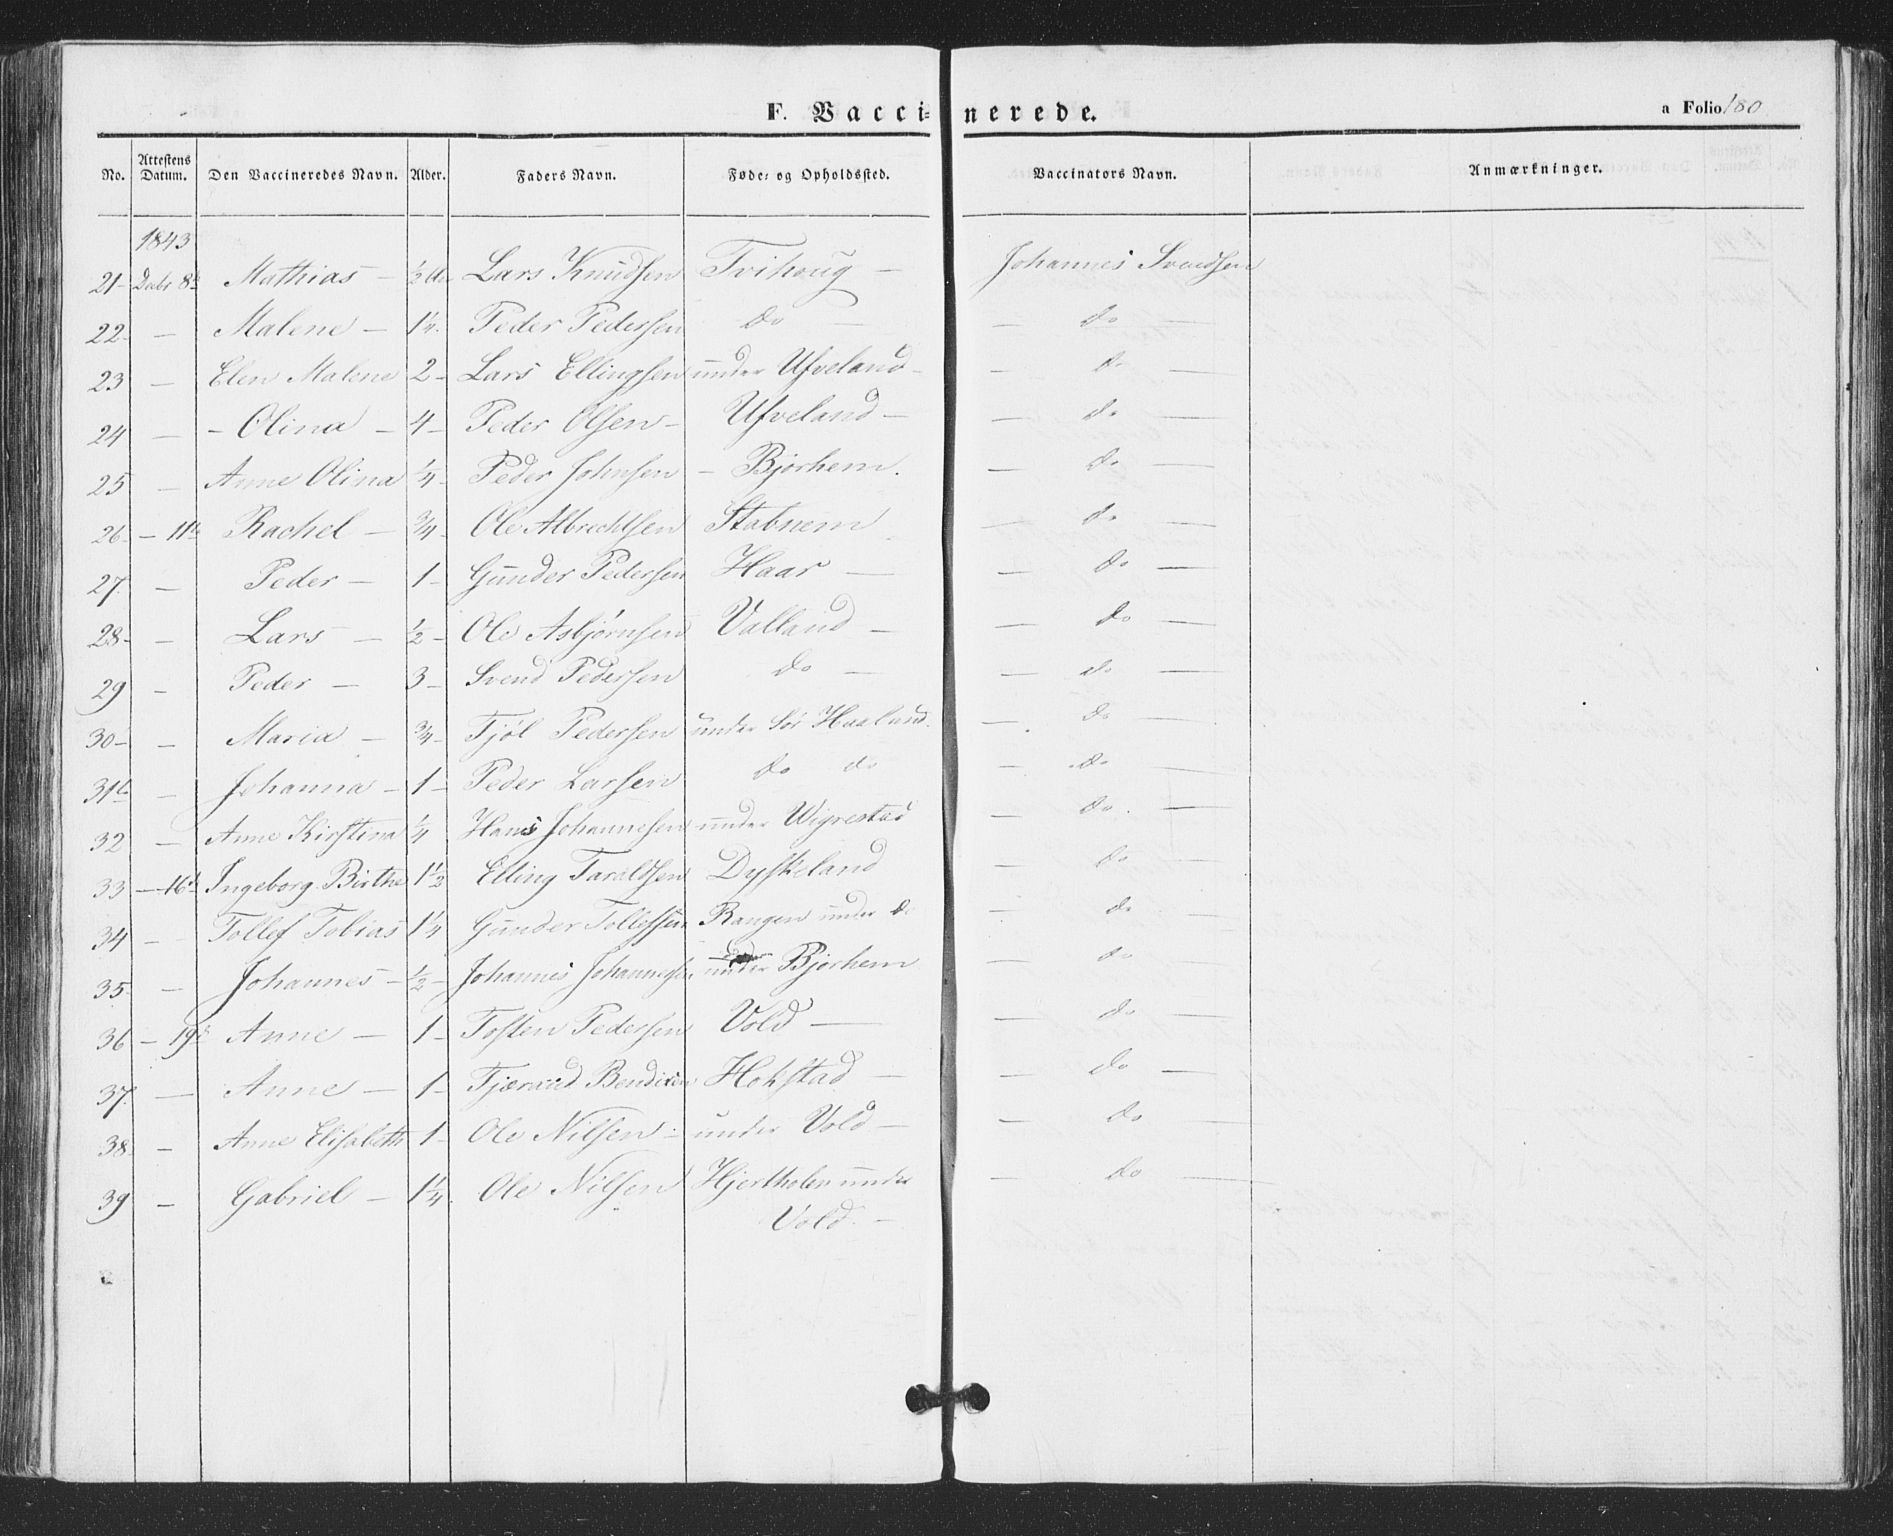 F. Vaccinerede.
a Folio 180
No. Attestens Datum. Den Vaccineredes Navn. Alder. Faders Navn. Føde- og Opholdssted. Vaccinators Navn. Anmærkninger.
1843
21 Dcbr 8 Mathias ½ Lars Knudsen Tvihoug Johannes Svendsen
22 — Malene 1¼ Peder Pedersen do do
23 — Elen Malene 2 Lars Ellingsen under Ufveland do
24 — Olina 4 Peder Olsen Ufveland do
25 — Anne Olina ¼ Peder Johnsen Bjorhem do
26 — 11 Rachel ¾ Ole Albrechtsen Stabnem do
27 — Peder 1 Gunder Pedersen Haar do
28 — Lars ½ Ole Asbjørnsen Valland do
29 — Peder 3 Svend Pedersen do do
30 — Maria ¾ Tjøl Pedersen under Sör Haaland do
31 — Johanna 1 Peder Larsen do do do
32 — Anne Kirstina ¼ Hans Johannesen under Wigrestad do
33 — 16 Ingeborg Birthe 1½ Elling Taraldsen Dyskeland do
34 — Tollef Tobias 1¼ Gunder Tollefsen Rangen under do do
35 — Johannes ½ Johannes Johannesen under Bjorhem do
36 — 19 Anne 1 Tosten Pedersen Vold do
37 — Anne 1 Tjærand Bendixen Hohstad do
38 — Anne Elisabeth 1 Ole Nilsen under Vold do
39 — Gabriel 1¼ Ole Nilsen Hjertholen under do
Vold